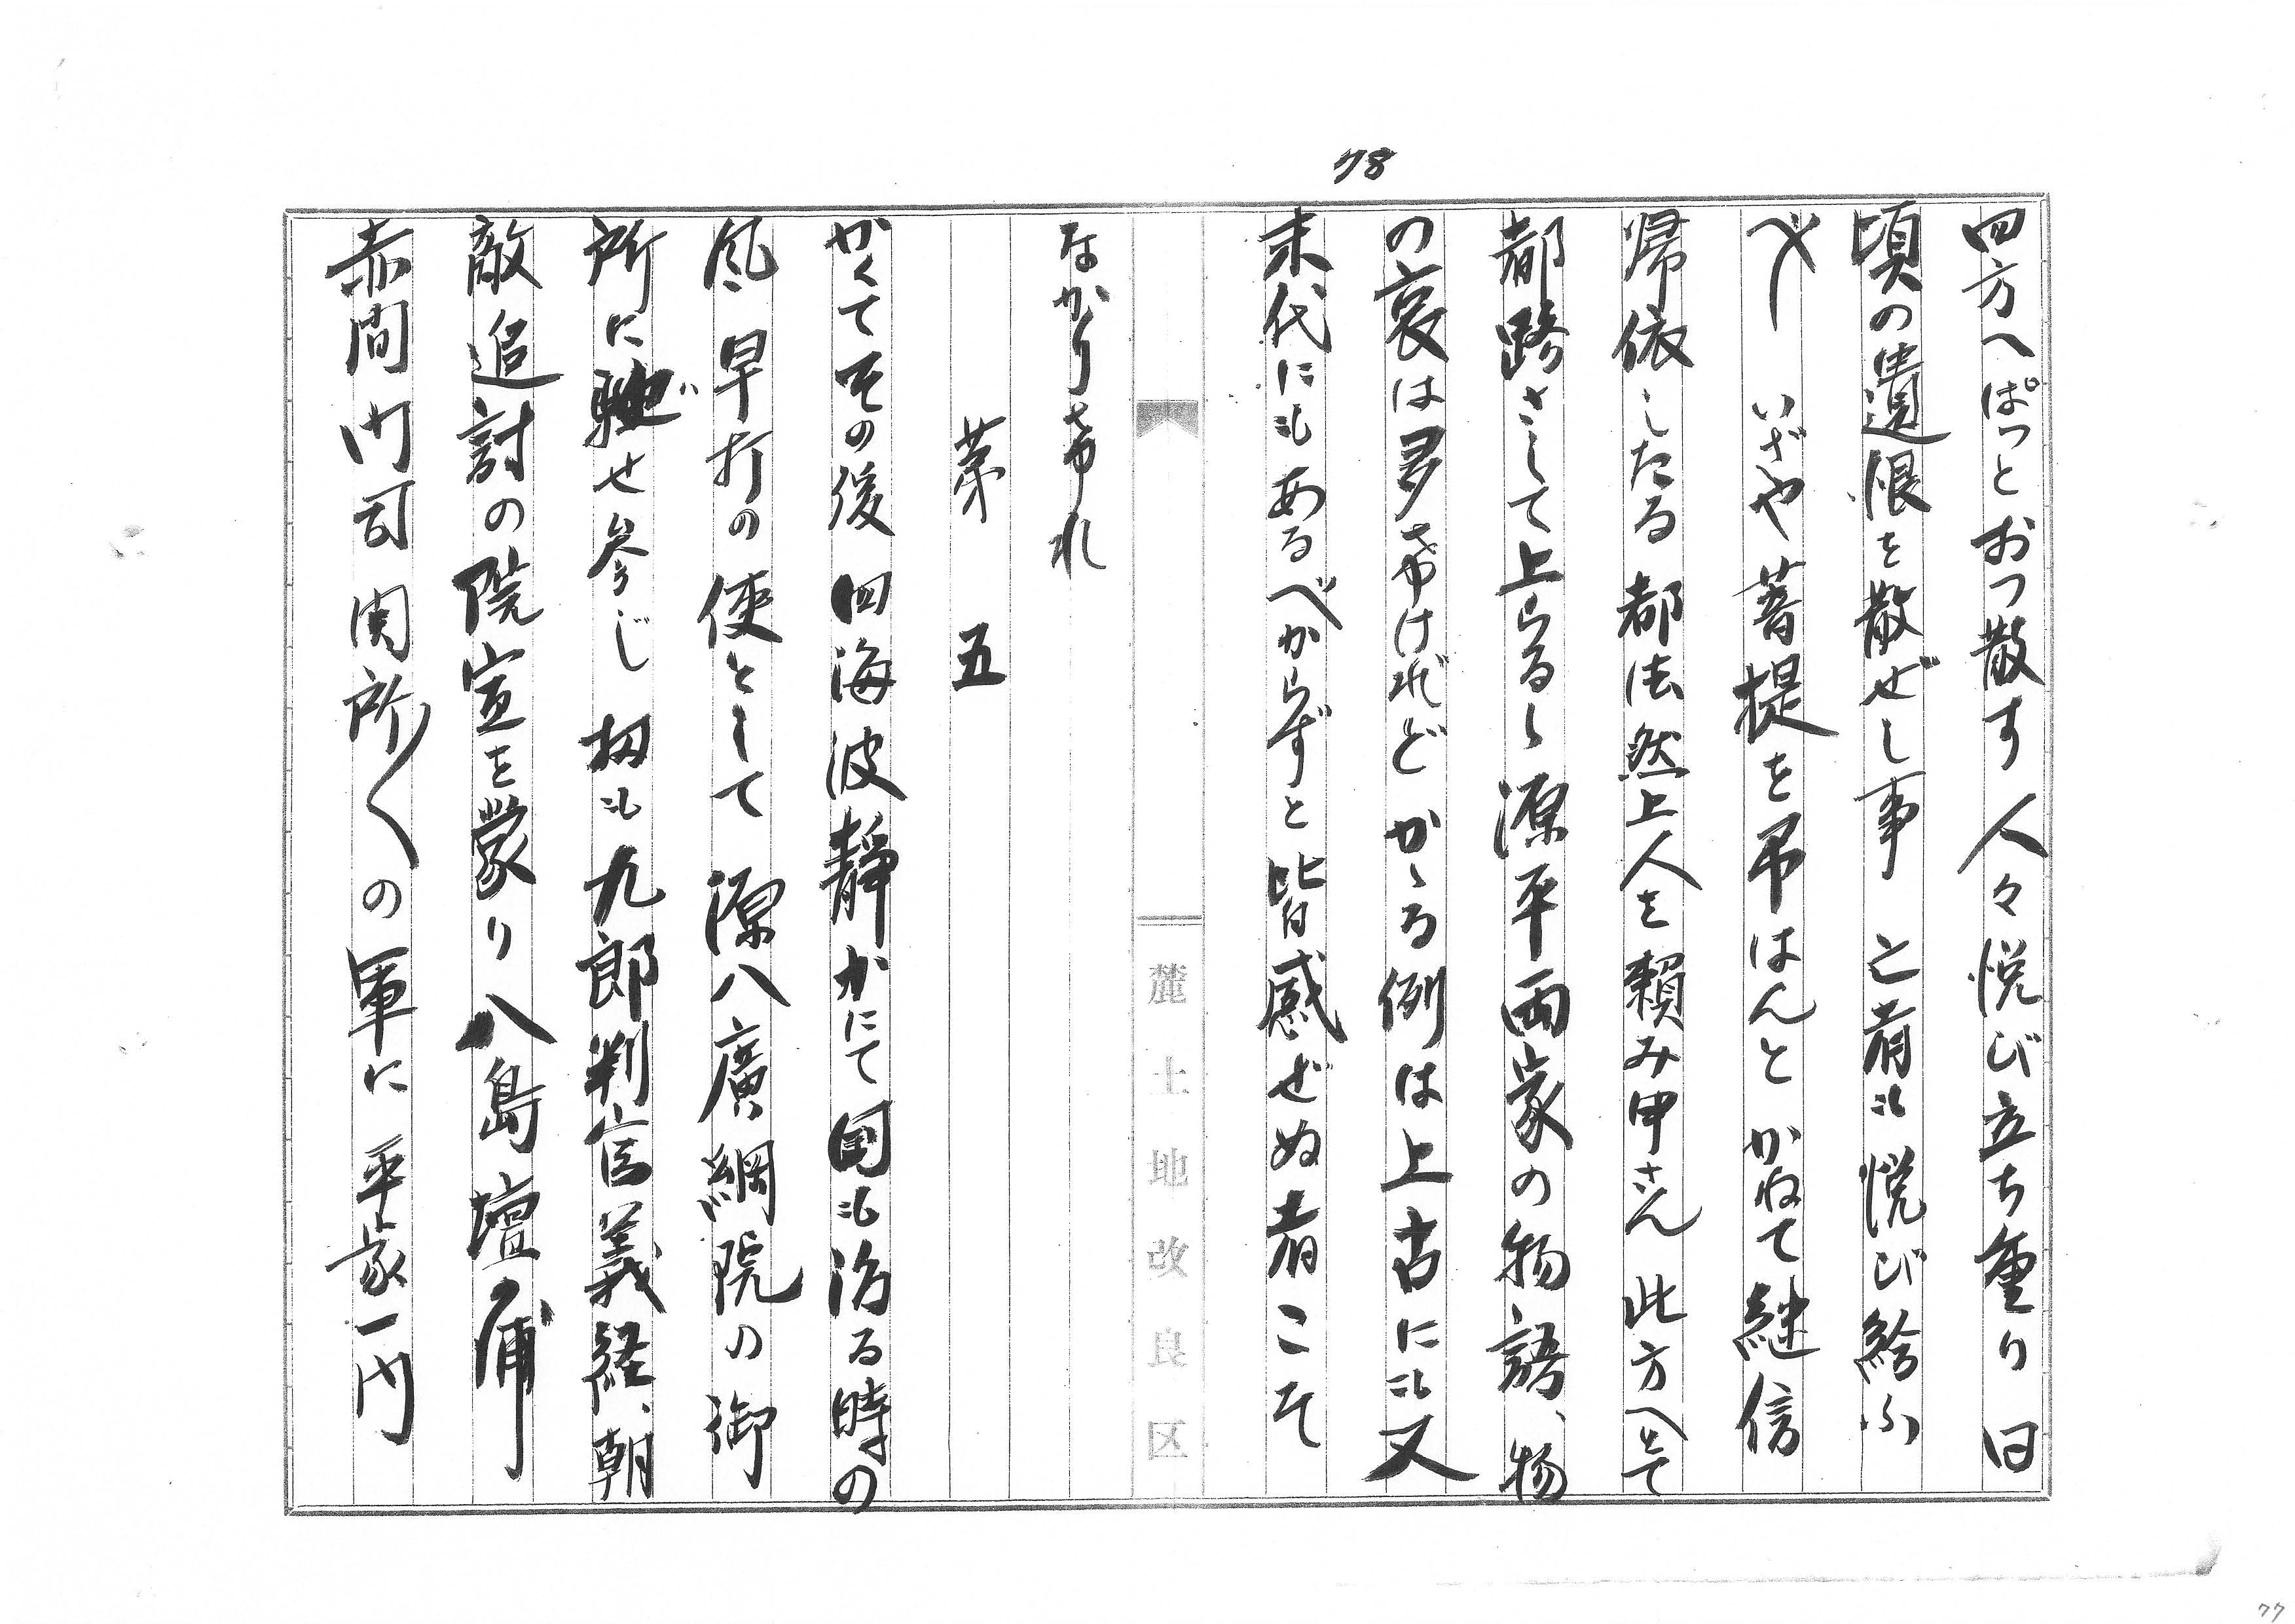 78
四方へぱっとおっ散す人々悦び立ち重り日
頃の遺恨を散ぜし事 亡者も悦び給ふ
べし いざや菩提を弔はんと かねて継信
帰依したる都法然上人を頼み申さん 此方へとて
都路さして上らるゝ源平両家の物語、物
の哀は多けれど かゝる例は上古にも又
末代にもあるべからずと皆感ぜぬ者こそ
なかりけれ
麓土地改良区
第 五
かくてその後 四海波静かにて国も治る時の
風早打の使として源八廣綱院の御
所に馳せ参じ 扨も九郎判官義経、朝
敵追討の院宣を蒙り八島壇ノ浦
赤間門司関所〱の軍に平家一門
77